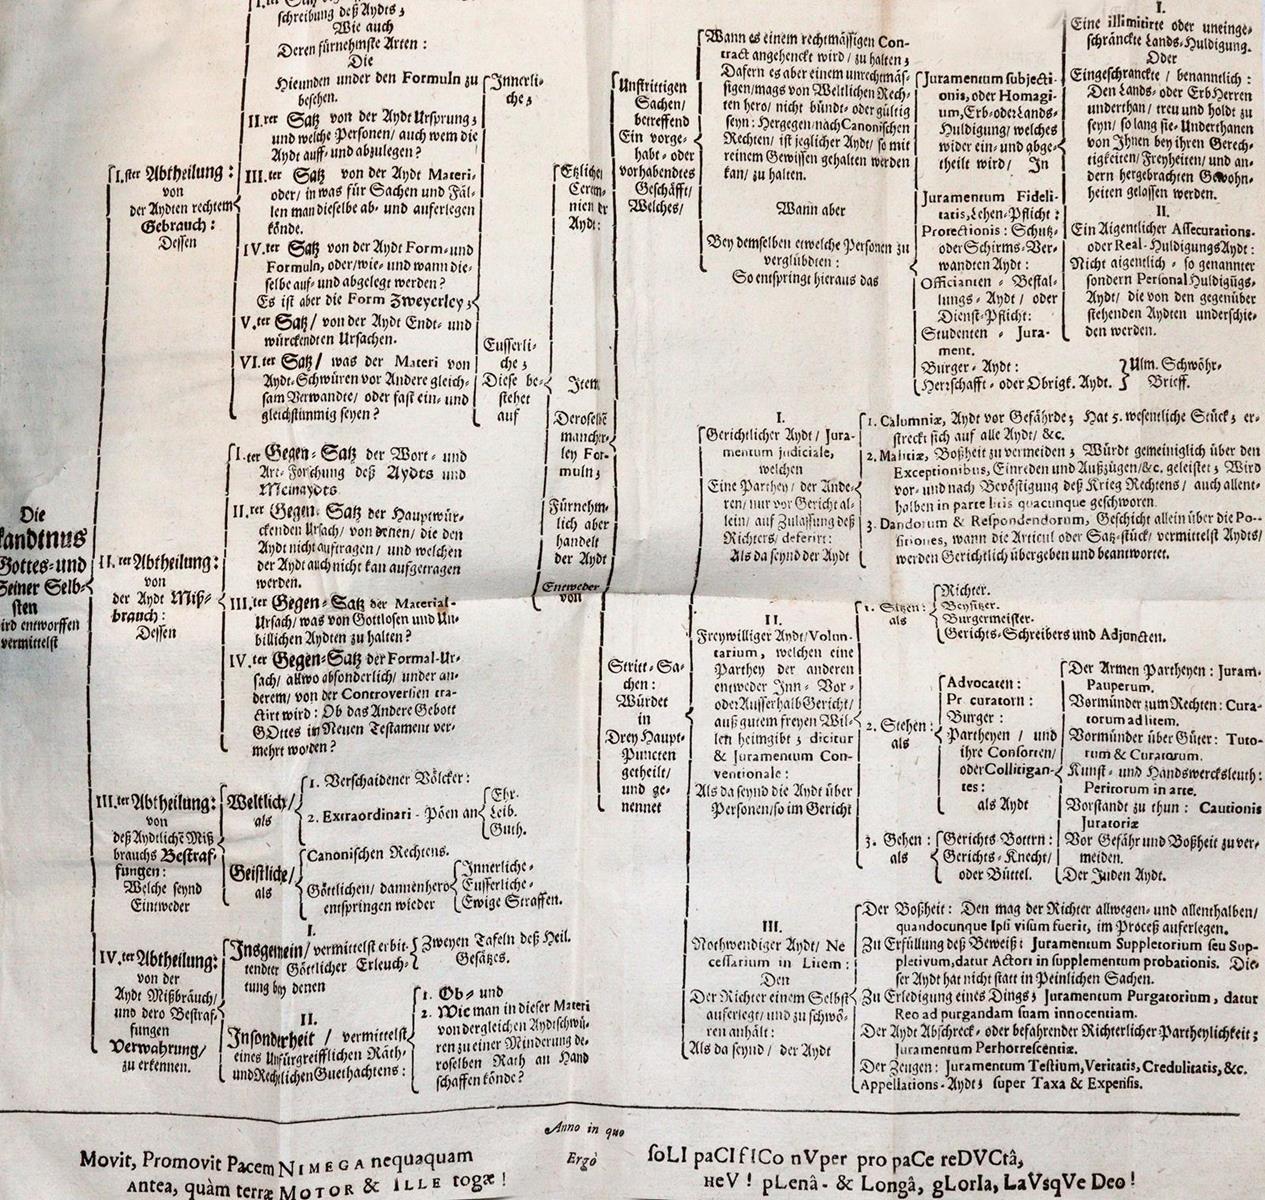 schreibung deß Aydts;
Wie auch
Deren fürnehmste Arten:
Die
Hieunden under den Formuln zu
besehen.
II.ter Satz von der Aydt Ursprung;
und welche Personen / auch wem die
Aydt auff- und abzulegen?
III.ter Satz von der Aydt Materi-
oder / in was für Sachen und Fäl-
len man dieselbe ab- und auferlegen
könde.
IV.ter Satz von der Aydt Form- und
Formuln, oder / wie- und wann die-
selbe auf- und abgelegt werden?
Es ist aber die Form Zweyerley;
V.ter Satz / von der Aydt Endt- und
würckendten Ursachen.
VI.ter Satz / was der Materi von
Aydt-Schwüren vor Andere gleich-
sam Verwandte / oder fast ein- und
gleichstimmig seyen?
I.ster Abtheilung:
von
der Aydten rechtem
Gebrauch:
Dessen
Innerli-
che;
Eusserli-
che;
Diese be-
stehet
auf
Etzliche
Cerem-
nien der
Aydt:
Item
Deroselbe
mancher-
ley For-
muln;
Fürnehm-
lich aber
handelt
der Aydt
Entweder
von
Die
Gottes- und
Seiner Selb-
sten
wird entworffen
vermittelst
II.ter Abtheilung:
von
der Aydt Miß-
brauch:
Dessen
I.ter Gegen-Satz der Wort- und
Art-Forschung deß Aydts und
Meinaydts
II.ter Gegen-Satz der Hauptwür-
ckenden Ursach / von denen / die den
Aydt nicht auftragen / und welchen
der Aydt auch nicht kan aufgetragen
werden.
III.ter Gegen-Satz der Material-
Ursach / was von Gottlosen und Un-
billichen Aydten zu halten?
IV.ter Gegen-Satz der Formal-Ur-
sach / allwo absonderlich / under an-
derem / von der Controversien tra-
ctirt wird: Ob das Andere Gebott
GOttes im Neuen Testament ver-
mehrt worden?
III.ter Abtheilung:
von
deß Aydtlichē Miß
brauchs Bestraf-
fungen:
Welche seynd
Eintweder
Weltlich /
als
1. Verschaidener Völcker:
2. Extraordinari-Pöen an
Ehr.
Leib.
Guth.
Geistliche /
als
Canonischen Rechtens.
Göttlichen / dannenhero
entspringen wieder
Innerliche-
Eusserliche-
Ewige Straffen.
IV.ter Abtheilung:
von der
Aydt Mißbräuch /
und dero Bestraf-
fungen
Verwahrung /
zu erkennen.
I.
Insgemein / vermittelst erbit-
tendter Göttlicher Erleuch-
tung bey denen
Zweyen Tafeln deß Heil.
Gesätzes.
II.
Insonderheit / vermittelst
eines Unfürgreifflichen Räth-
und Rechtlichen Guethachtens:
1. Ob- und
2. Wie man in dieser Materi
von dergleichen Aydtschwü-
ren zu einer Minderung de-
roselben Rath an Hand
schaffen könde?
Unstrittigen
Sachen /
betreffend
Ein vorge-
habt- oder
vorhabendtes
Geschäfft /
Welches /
Wann es einem rechtmässigen Con-
tract angehenckt wird / zu halten;
Dafern es aber einem unrechtmäs-
sigen / mags von Weltlichen Rech-
ten hero / nicht bündt- oder gültig
seyn: Hergegen / nach Canonischen
Rechten / ist jeglicher Aydt / so mit
reinem Gewissen gehalten werden
kan / zu halten.
Wann aber
Bey demselben etwelche Personen zu
verglübdten:
So entspringt hieraus das
Juramentum subjecti-
onis, oder Homagi-
um, Erb- oder Lands-
Huldigung / welches
wider ein- und abge-
theilt wird / In
Juramentum Fideli-
tatis, Lehen-Pflicht:
Protectionis: Schutz-
oder Schirms-Ver-
wandten Aydt:
Officianten-Bestal-
lungs-Aydt / oder
Dienst-Pflicht:
Studenten-Jura-
ment.
Burger-Aydt:
Herrschafft- oder Obrigk. Aydt.
Ulm. Schwöhr-
Brieff.
I.
Eine illimitirte oder uneinge-
schränckte Lands-Huldigung.
Oder
Eingeschranckte / benanntlich:
Den Lands- oder Erb Herren
underthan / treu und holdt zu
seyn / so lang sie-Underthanen
von Ihnen bey ihren Gerech-
tigkeiten / Freyheiten / und an-
dern hergebrachten Gewohn-
heiten gelassen werden.
II.
Ein Aigentlicher Assecurations-
oder Real-Huldigungs Aydt:
Nicht aigentlich- so genannter
sondern Personal Huldigūgs-
Aydt / die von den gegenüber
stehenden Aydten underschie-
den werden.
Stritt-Sa-
chen:
Würdet
in
Drey Haupt-
Puncten
getheilt /
und ge-
nennet
I.
Gerichtlicher Aydt / Jura-
mentum judiciale,
welchen
Eine Parthey / der Ande-
ren / nur vor Gericht al-
lein / auf Zulassung deß
Richters / deferirt:
Als da seynd der Aydt
1. Calumniæ, Aydt vor Gefährde; Hat 5. wesentliche Stück; er-
streckt sich auf alle Aydt / &c.
2. Malitiæ, Boßheit zu vermeiden; Würdt gemeiniglich über den
Exceptionibus, Einreden und Außzügen / &c. geleistet; Wird
vor- und nach Bevöstigung deß Krieg Rechtens / auch allent-
halben in parte litis quacunque geschworen.
3. Dandorum & Respondendorum, Geschicht allein über die Po-
sitiones, wann die Articul oder Satz-stück / vermittelst Aydts /
werden Gerichtlich übergeben und beantwortet.
II.
Freywilliger Aydt / Volun-
tarium, welchen eine
Parthey der anderen
entweder Inn- Vor-
oder Ausserhalb Gericht /
auß gutem freyen Wil-
len heimgibt; dicitur
& Juramentum Con-
ventionale:
Als da seynd die Aydt über
Personen / so im Gericht
1. Sitzen:
als
Richter.
Beysitzer.
Burgermeister.
Gerichts-Schreibers und Adjuncten.
2. Stehen:
als
Advocaten:
Procuratorn:
Burger:
Partheyen / und
ihre Consorten /
oder Collitigan-
tes:
als Aydt
Der Armen Partheyen: Juram.
Pauperum.
Vormünder zum Rechten: Cura-
torum ad litem.
Vormünder über Güter: Tuto-
rum & Curatorum.
Kunst- und Handwercksleuth:
Peritorum in arte.
Vorstandt zu thun: Cautionis
Juratoriæ
Vor Gefähr und Boßheit zu ver-
meiden.
Der Juden Aydt.
3. Gehen:
als
Gerichts Bottrn:
Gerichts-Knecht /
oder Büttel.
III.
Nothwendiger Aydt / Ne
cessarium in Litem:
Den
Der Richter einem Selbst
auferlegt / und zu schwö-
ren anhält:
Als da seynd / der Aydt
Der Boßheit: Den mag der Richter allwegen- und allenthalben /
quandocunque Ipsi visum fuerit, im Proceß auferlegen.
Zu Erfüllung deß Beweiß: Juramentum Suppletorium seu Sup-
pletivum, datur Actori in supplementum probationis. Die-
ser Aydt hat nicht statt in Peinlichen Sachen.
Zu Erledigung eines Dings; Juramentum Purgatorium, datur
Reo ad purgandam suam innocentiam.
Der Aydt Abschreck- oder befahrender Richterlicher Partheylichkeit;
Juramentum Perhorrescentiæ.
Der Zeugen: Juramentum Testium, Veritatis, Credulitatis, &c.
Appellations-Aydt; super Taxa & Expensis.
Anno in quo
Movit, Promovit Pacem NIMEGA nequaquam
antea, quàm terræ MOTOR & ILLE togæ!
Ergò
soLI paCIfICo nVper pro paCe reDVCtâ,
HeV! pLenâ- & Longâ, gLorIa, LaVsqVe Deo!